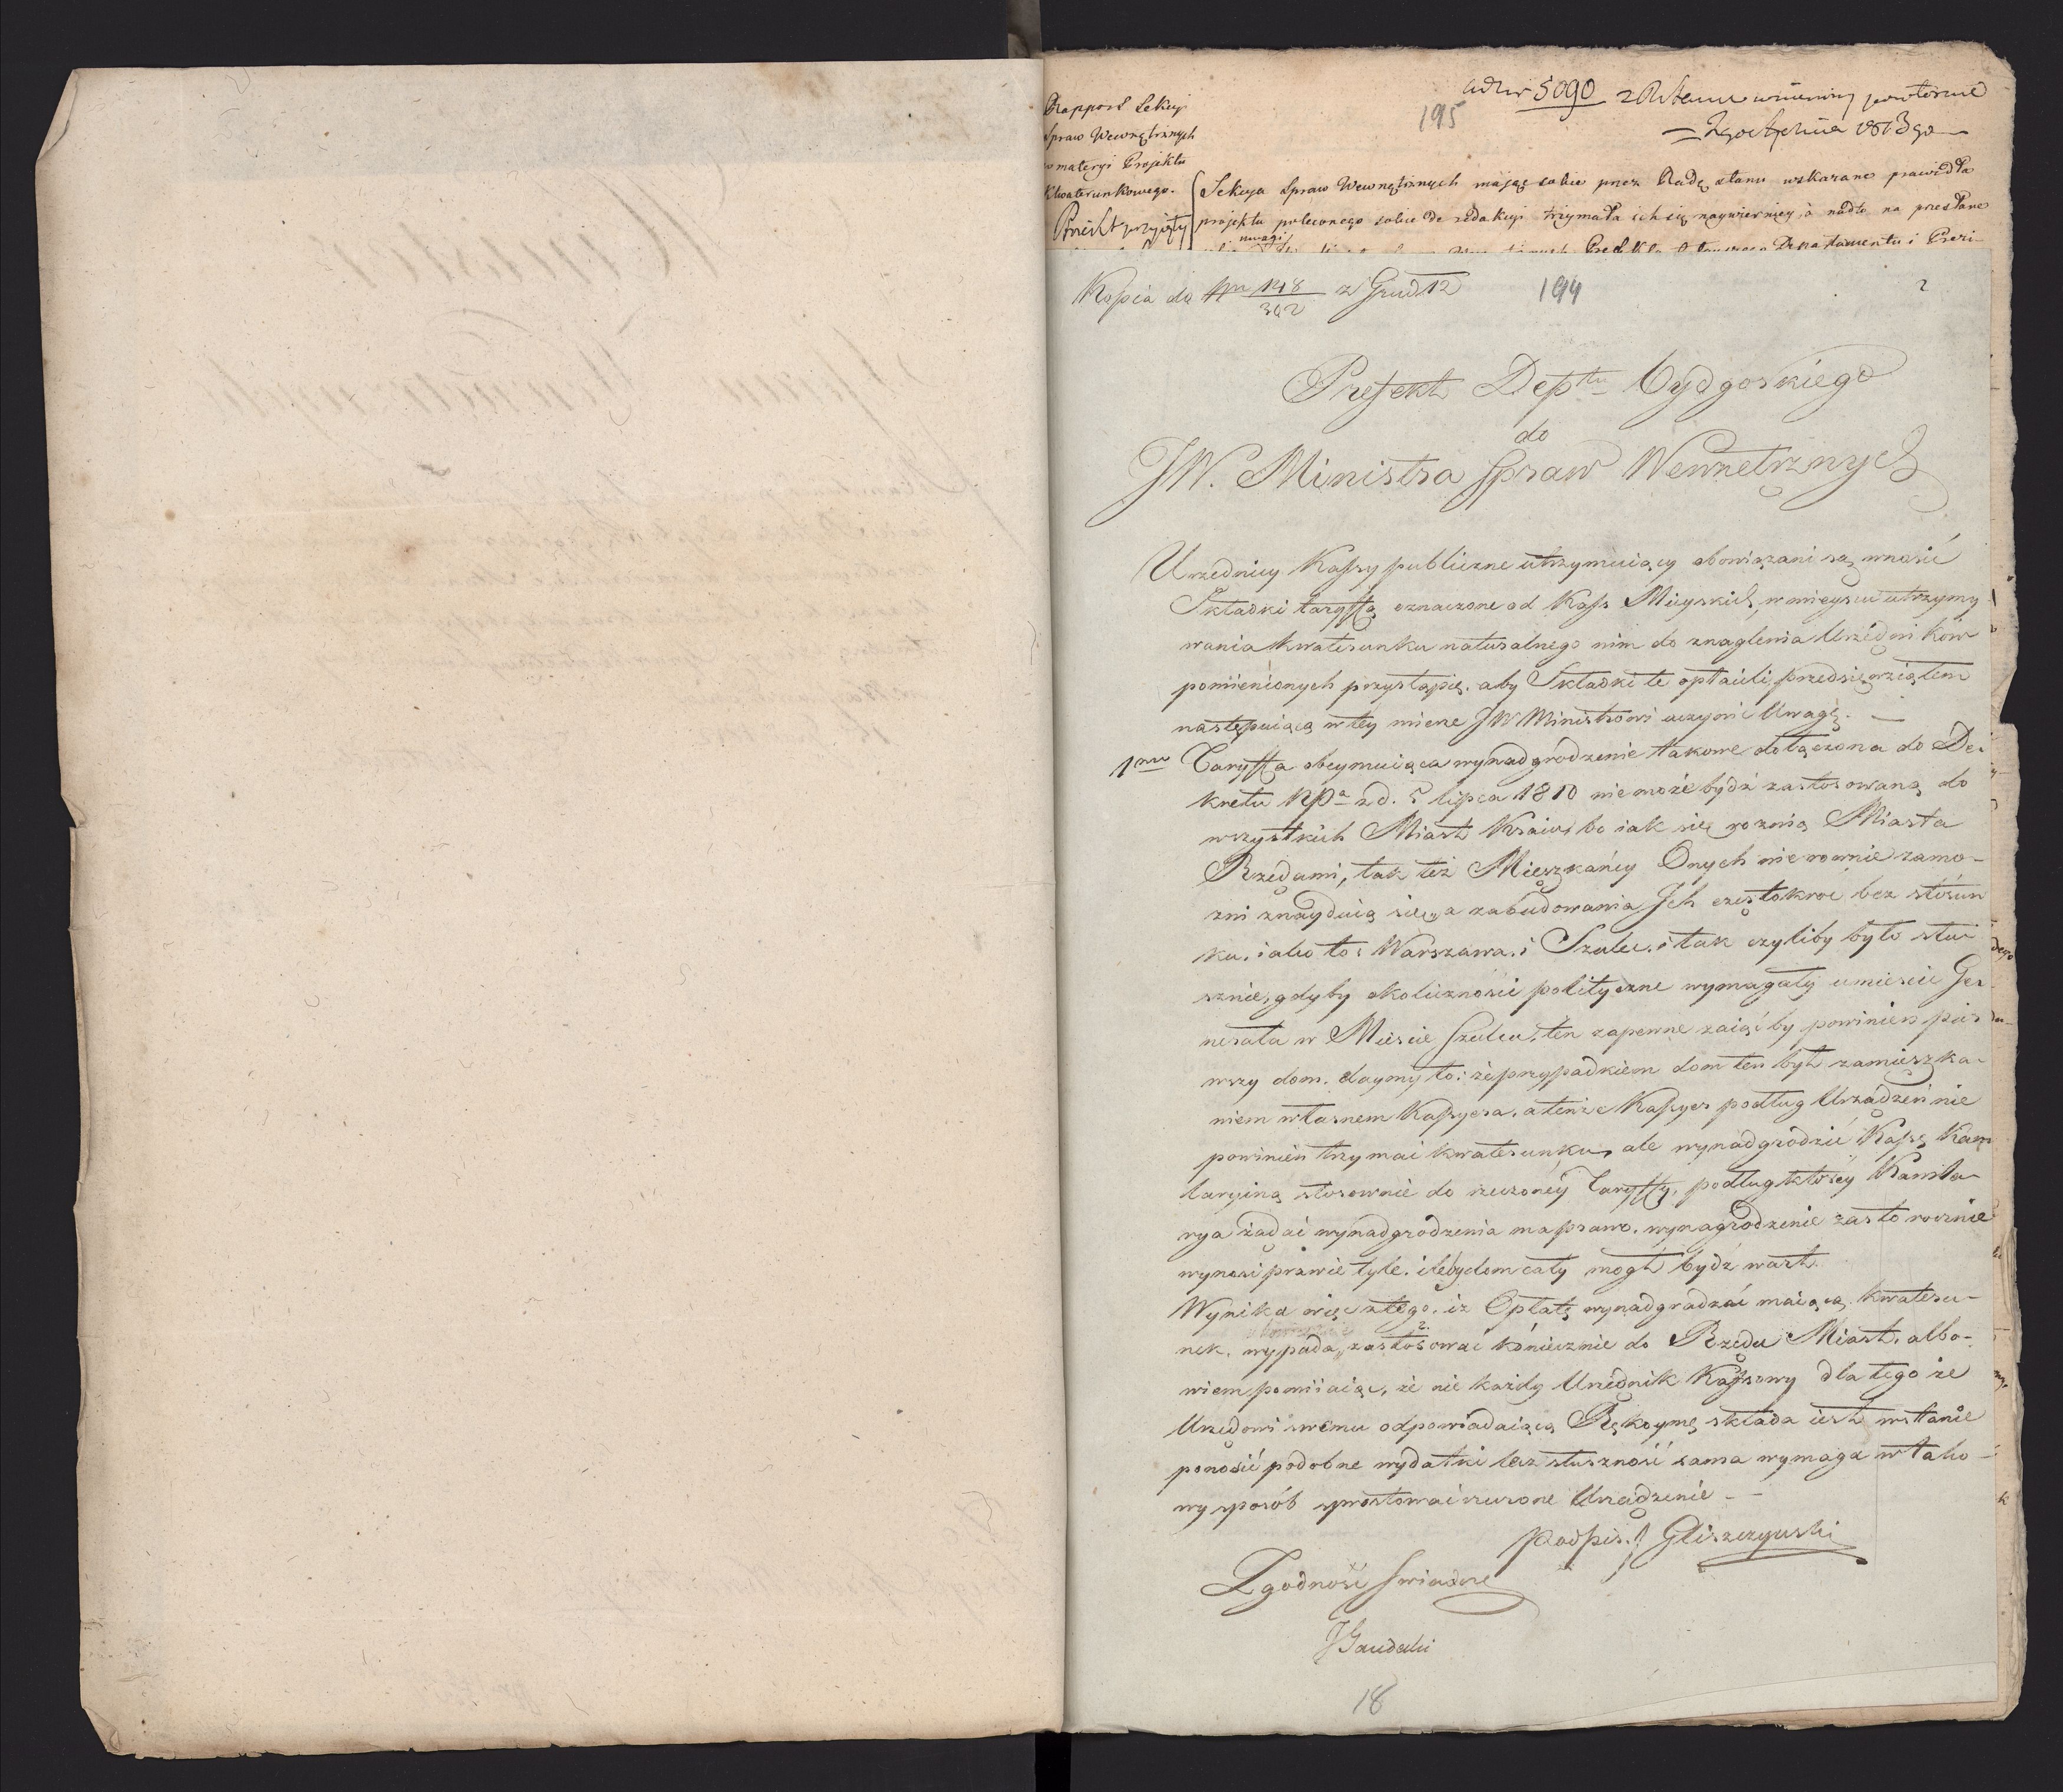 ad Nr 5090
195
Rapport Sekcyi
Spraw Wewnętrznych
w materyi Projektu
Kwaterunkowego.
Sekcya Spraw Wewnętrznych maiąc sobie przez Radę stanu wskazane prawidła
projektu poleconego sobie do redakcyi trzymała ich się naywierniey, a nadto na przesłane
uwagi
Kopia do Nru 148/302 z Grud 12
194
2
Prefekt Dep̱tu Bydgoskiego
do
JW. Ministra Spraw Wewnętrznych
Urzednicy Kassy publiczne utrzymuiący obowiązani są wnosić
Składki taryffą oznaczone od Kass Mieyskich, w mieyscu utrzymy
wania kwaterunku naturalnego nim do znaglenia Urzędników
pomienionych przystąpię, aby Składki te opłacili, przedsięwziąłem
następuiącą w tey mierze JW Ministrowi uczynić Uwagę. —
1mo Taryffa obeymuiąca wynadgrodzenie takowe dołączona do De-
kretu NPa z d. 5 lipca 1810 nie może bydź zastosowaną do
wszystkich Miast Kraiu, bo iak się roznią Miasta
Rzędami, tak też Mieszkańcy Onych nie rownie zamo-
zni znayduią się, a zabudowania Ich częstokroć bez stosun
ku. iako to: Warszawa. i Szulec. i tak czyliby było słu-
sznie, gdyby okoliczności polityczne wymagały umieścić Ge-
nerała w Mieście Szulcu, ten zapewne zaiąć by powinien pier-
wszy dom. daymy to: że przypadkiem dom ten był zamieszka-
niem własnem Kassyera, a tenże Kassyer podług Urządzeń nie
powinien trzymać kwaterunku, ale wynadgrodzić Kassę Kam
laryiną stosownie do rzeczoney Taryffy, podług ktorey Kamla-
rya żądać wynadgrodzenia ma prawo, wynagrodzenie zas to rocznie
wynosi prawie tyle. ileby dom cały mogł bydź wart.
Wynika więc z tego. iż Opłatę wynadgradzać maiącą kwateru-
nek. wypada, zastosować koniecznie do Rzędu Miast. albo-
wiem pomiiaiąc, że nie każdy Urzędnik Kassowy dla tego że
Urzędowi swemu odpowiadaiącą Rękoymę składa iest w stanie
ponosić podobne wydatki lecz słuszność sama wymaga w tako-
wy sposób sprostować rzeczone Urządzenie —
podpis.) Gliszczynski
Zgodność świadczę
18